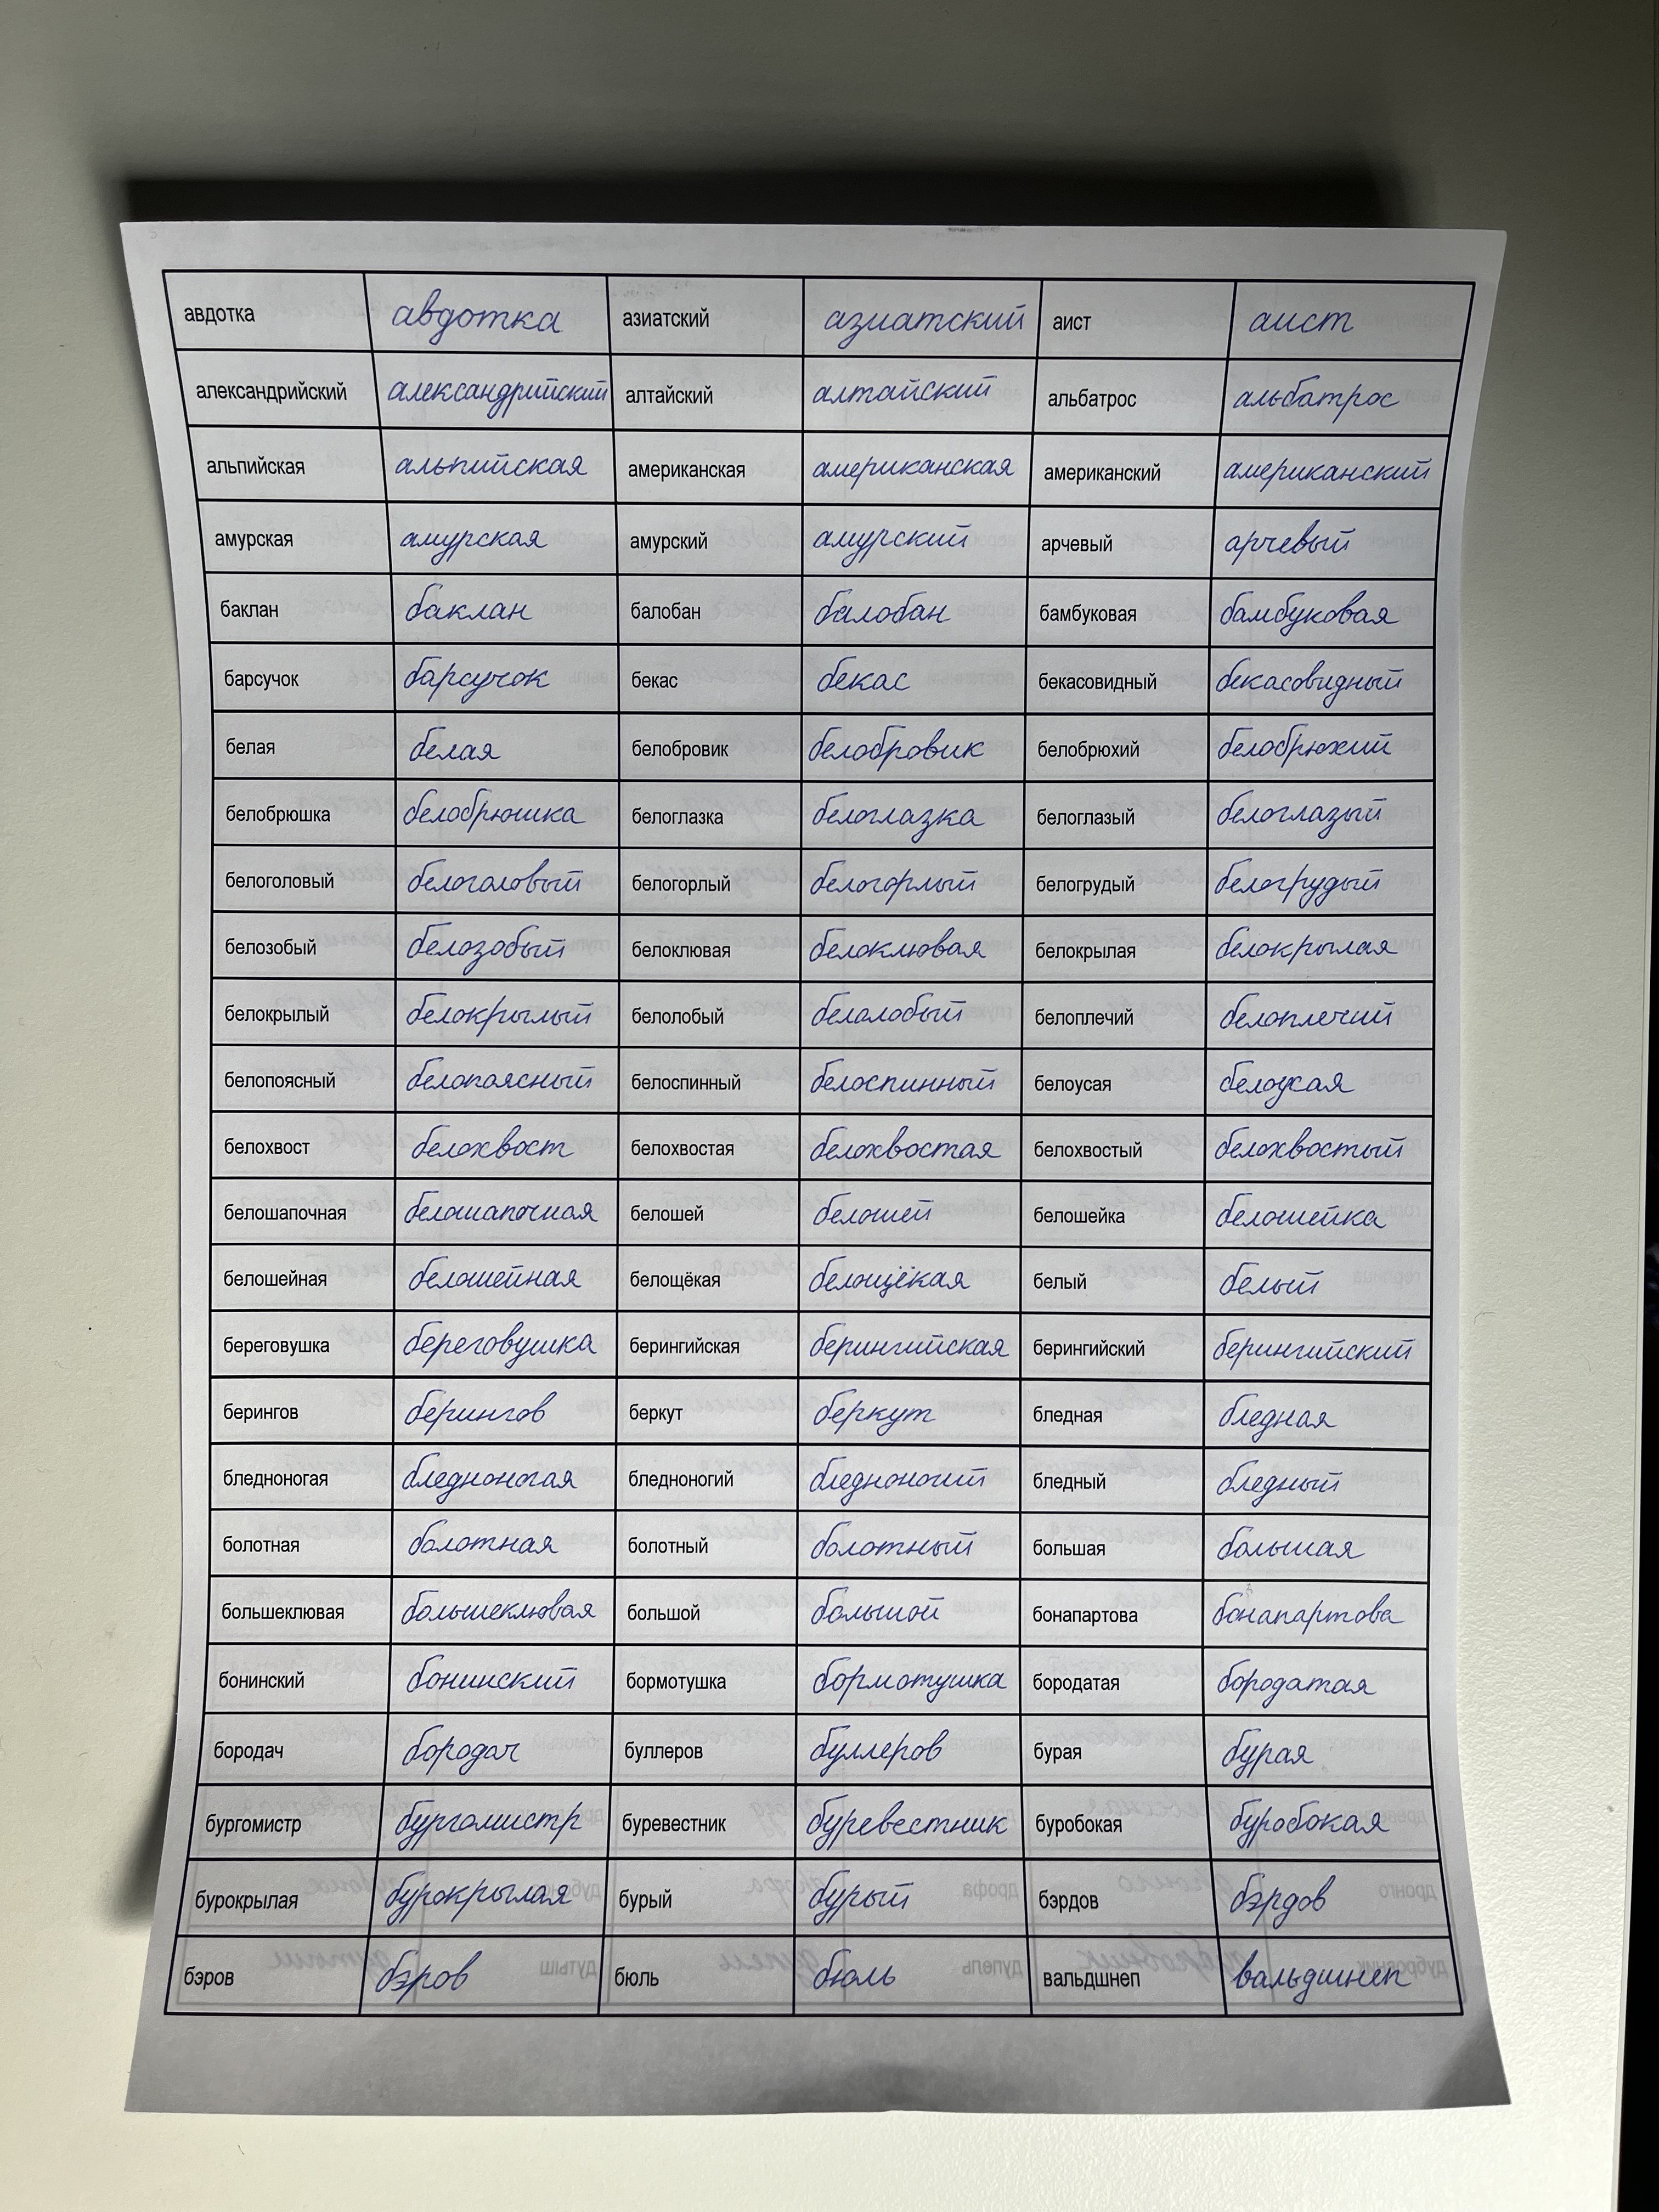 авдотка авдотка азиатский азиатский аист аист
александрийский александрийский алтайский алтайский альбатрос альбатрос
альпийская альпийская американская американская американский американский
амурская амурская амурский амурский арчевый арчевый
баклан баклан балобан балобан бамбуковая бамбуковая
барсучок барсучок бекас бекас бекасовидный бекасовидный
белая белая белобровик белобровик белобрюхий белобрюхий
белобрюшка белобрюшка белоглазка белоглазка белоглазый белоглазый
белоголовый белоголовый белогорлый белогорлый белогрудый белогрудый
белозобый белозобый белоклювая белоклювая белокрылая белокрылая
белокрылый белокрылый белолобый белолобый белоплечий белоплечий
белопоясный белопоясный белоспинный белоспинный белоусая белоусая
белохвост белохвост белохвостая белохвостая белохвостый белохвостый
белошапочная белошапочная белошей белошей белошейка белошейка
белошейная белошейная белощёкая белощёкая белый белый
береговушка береговушка берингийская берингийская берингийский берингийский
берингов берингов беркут беркут бледная бледная
бледноногая бледноногая бледноногий бледноногий бледный бледный
болотная болотная болотный болотный большая большая
большеклювая большеклювая большой большой бонапартова бонапартова
бонинский бонинский бормотушка бормотушка бородатая бородатая
бородач бородач буллеров буллеров бурая бурая
бургомистр бургомистр буревестник буревестник буробокая буробокая
бурокрылая бурокрылая бурый бурый бэрдов бэрдов
бэров бэров бюль бюль вальдшнеп вальдшнеп